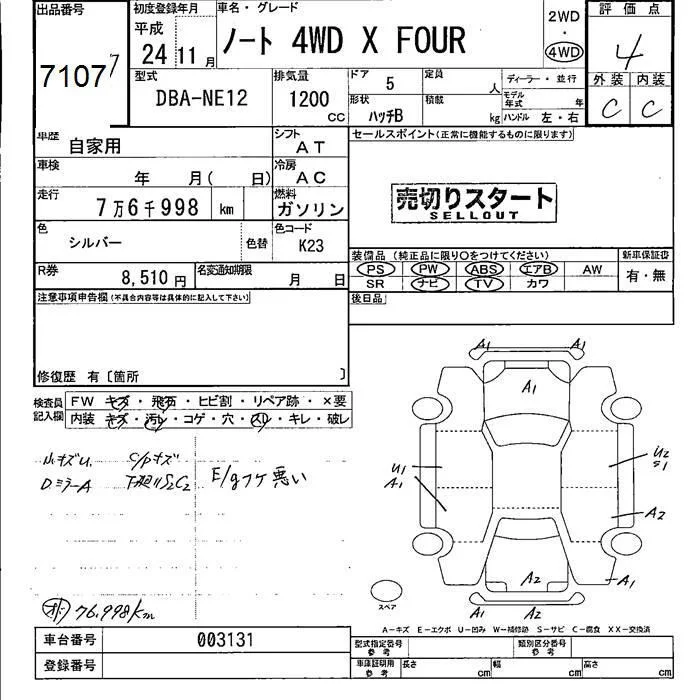 出品番号 初度登録年月 車名・グレード 2WD 評価点
平成 ノート 4WD X FOUR ・
7107 7 24 11月 4WD 4
型式 排気量 ドア 5 定員 人 ディーラー・並行 外装 内装
DBA-NE12 1200 CC 形状 ハッチB 積載 kg モデル年式 年 ハンドル 左・右 C C
車歴 自家用 シフト AT セールスポイント(正常に機能するものに限ります)
車検 年 月( 日) 冷房 AC
走行 7万6千998 km 燃料 ガソリン 売切りスタート
SELLOUT
色 シルバー 色替 色コード K23
装備品(純正品に限り○をつけてください) 新車保証書
R券 8,510円 名変通知期限 月 日 PS PW ABS エアB AW 有・無
SR ナビ TV カワ
注意事項申告欄(不具合内容等は具体的に記入して下さい) 後日品
修復歴 有〔箇所 〕
検査員記入欄 FW キズ・飛石・ヒビ割・リペア跡・×要
内装 キズ・汚レ・コゲ・穴・スレ・キレ・破レ
小キズU. C/Pキズ E/gフケ悪い
DミラーA 下廻りS2C2
A1 A1
A1
U1 A1 U2 S1
A2
A2 A1
A1 A2
スペア
76.998km
A-キズ E-エクボ U-凹み W-補修跡 S-サビ C-腐食 XX-交換済
車台番号 003131 型式指定番号 参考 類別区分番号 参考
登録番号 車庫証明用 参考 長さ cm 幅 cm 高さ cm